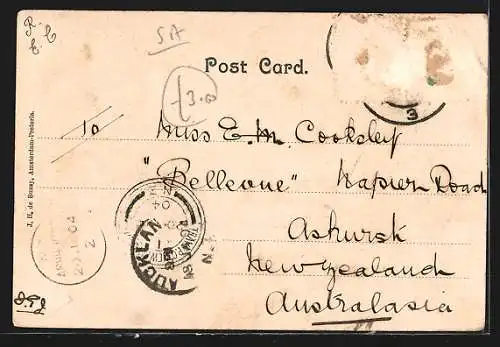 R. C
C
SA
Post Card.
£3.0
3
To
Miss E. M. Cooksley
"Bellevue" Napier Road
Ashursk
New Zealand
Australasia
J. H. de Bussy, Amsterdam-Pretoria.
04
2
AUCKLAN
N Z
04